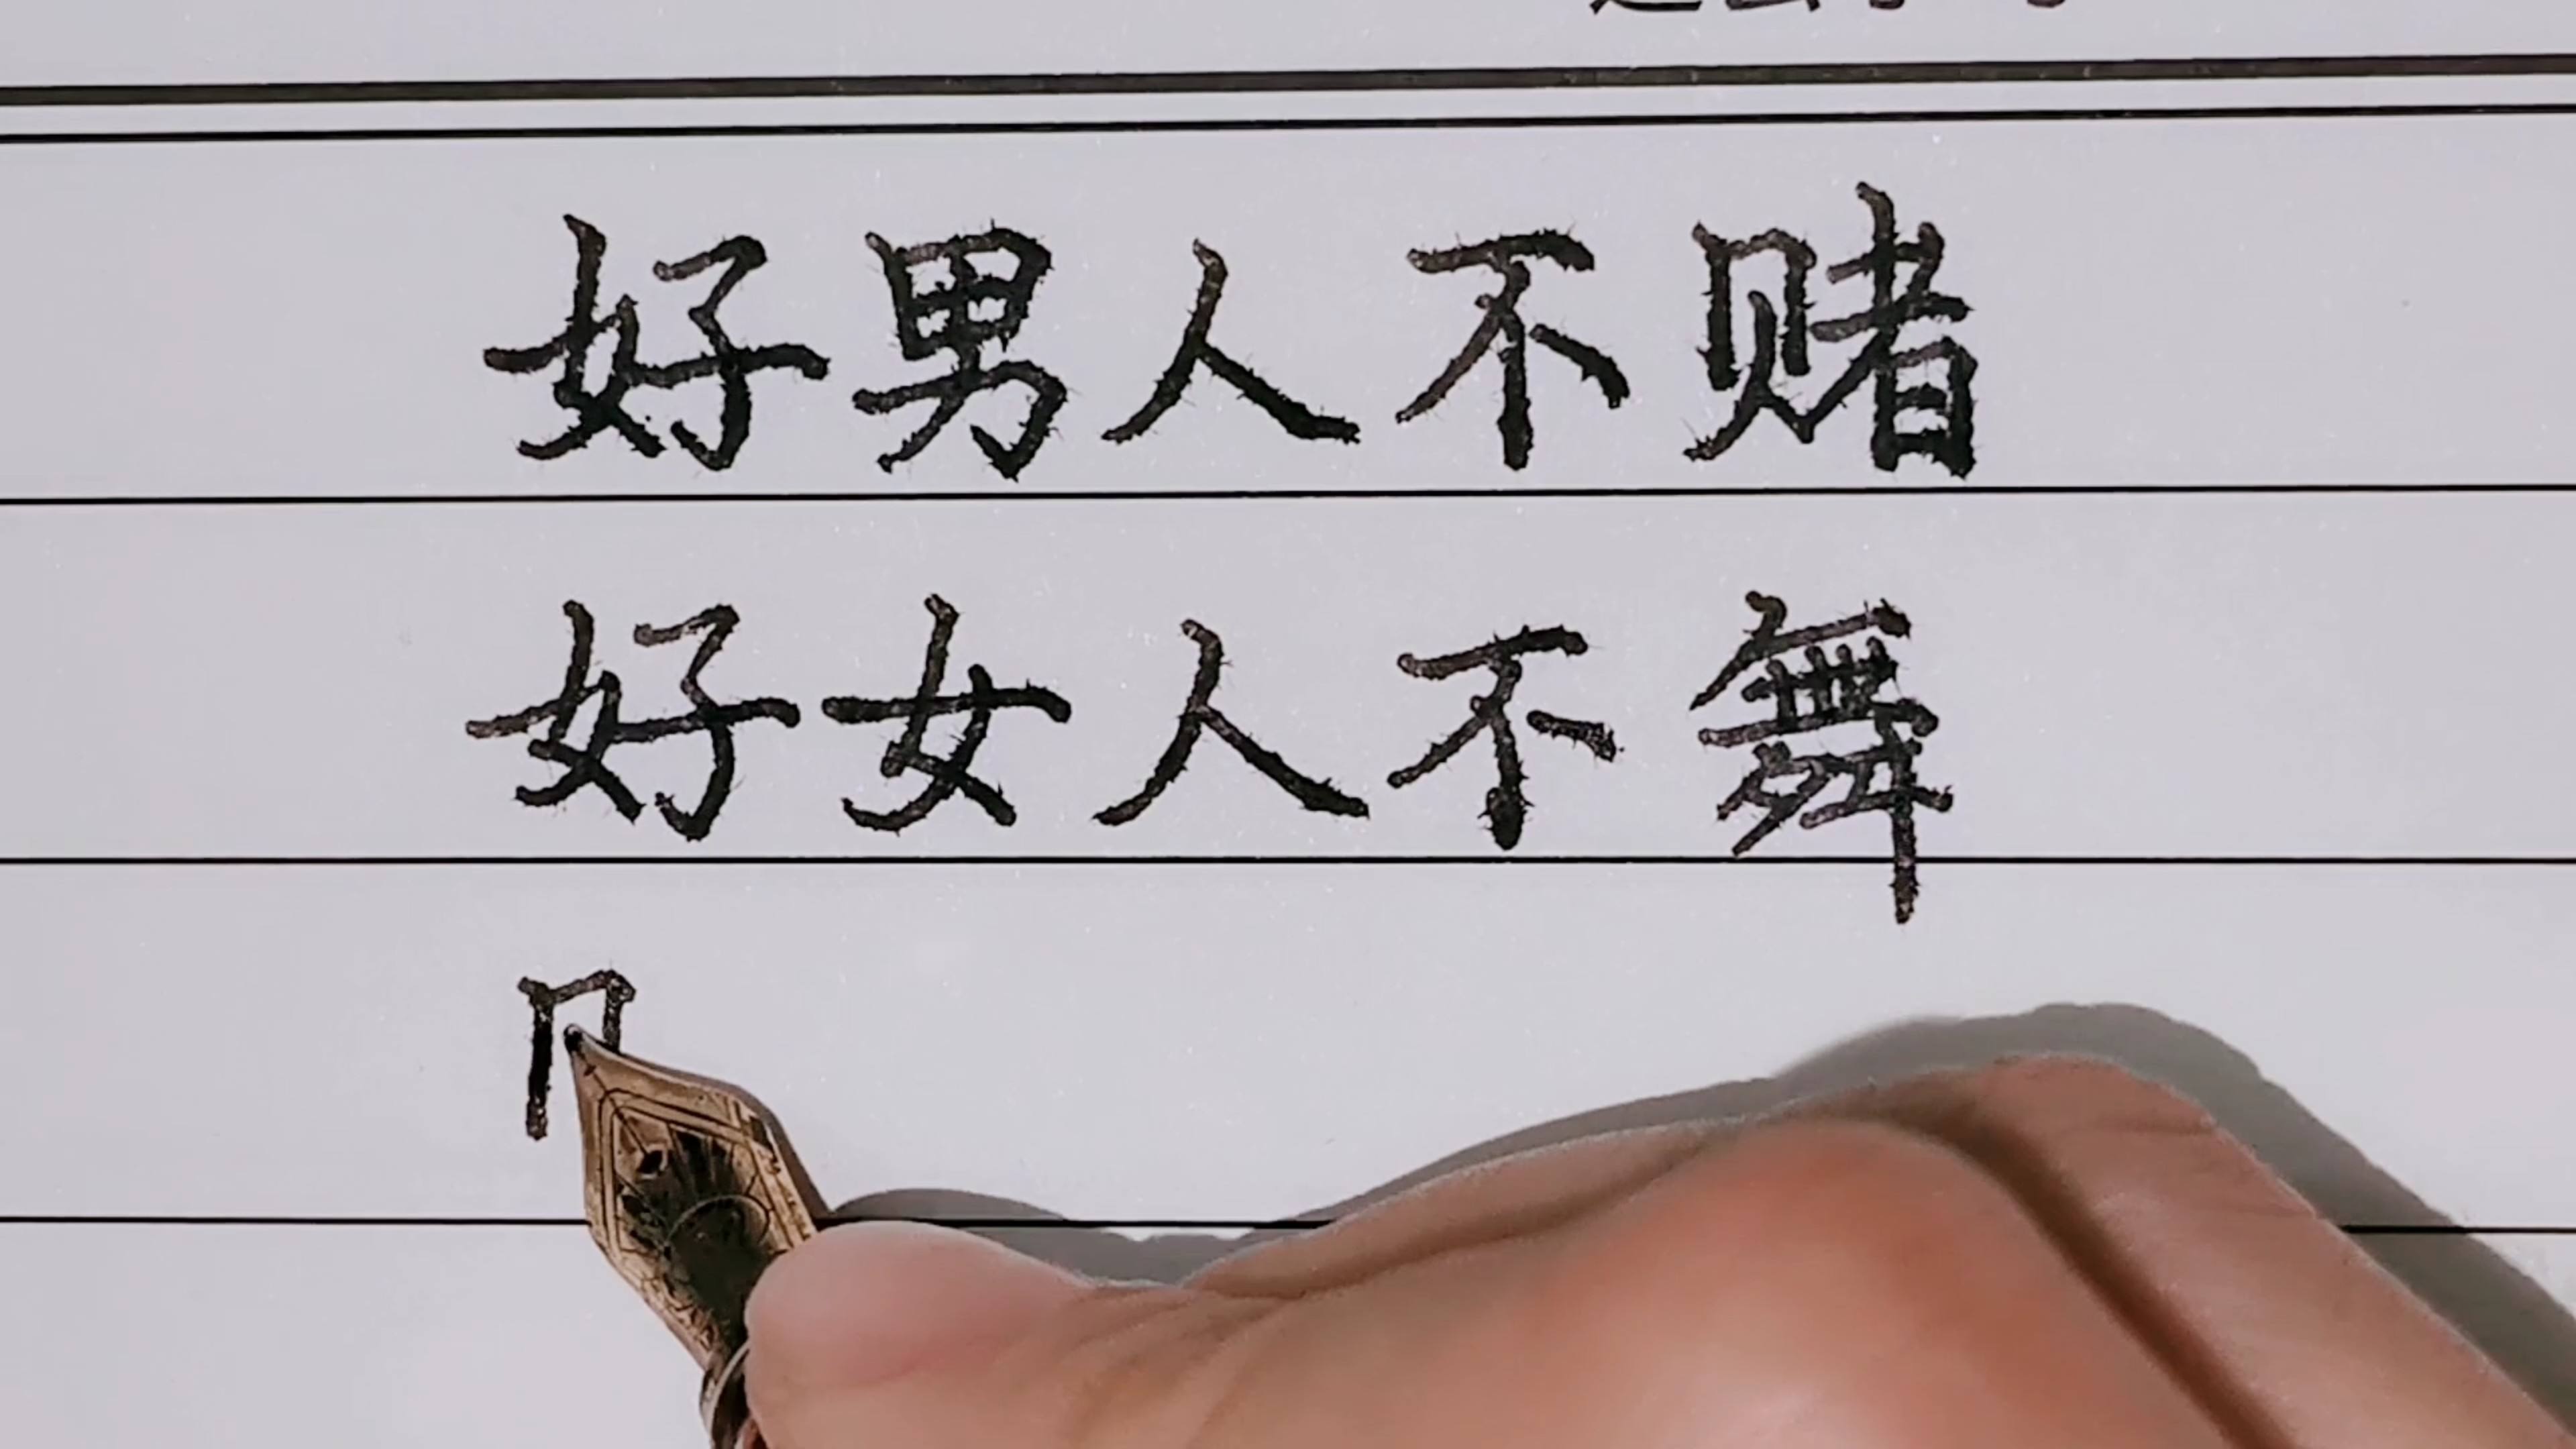 好男人不赌
好女人不舞